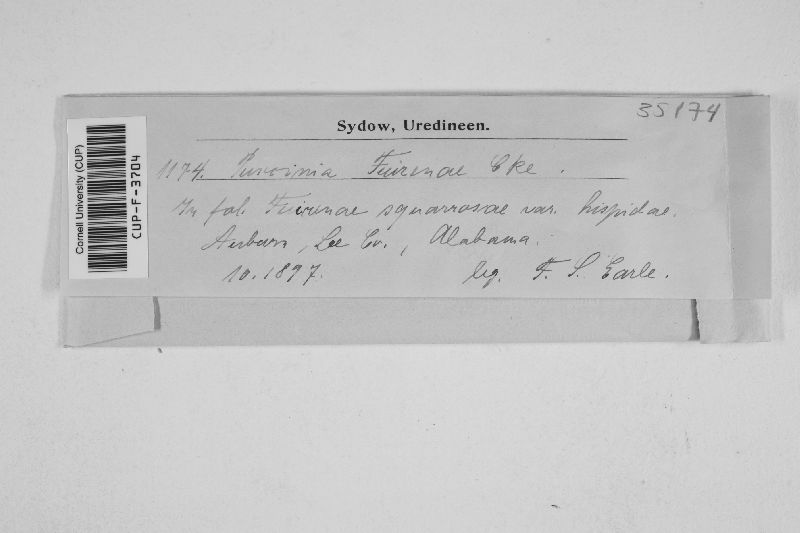 35174
Sydow, Uredineen.
1174. Puccinia Fuirenae Cke.
In fol. Fuirenae squarrosae var. hispidae.
Auburn, Lee Co., Alabama.
10.1897. leg. F. S. Earle.
Cornell University (CUP)
CUP-F-3704